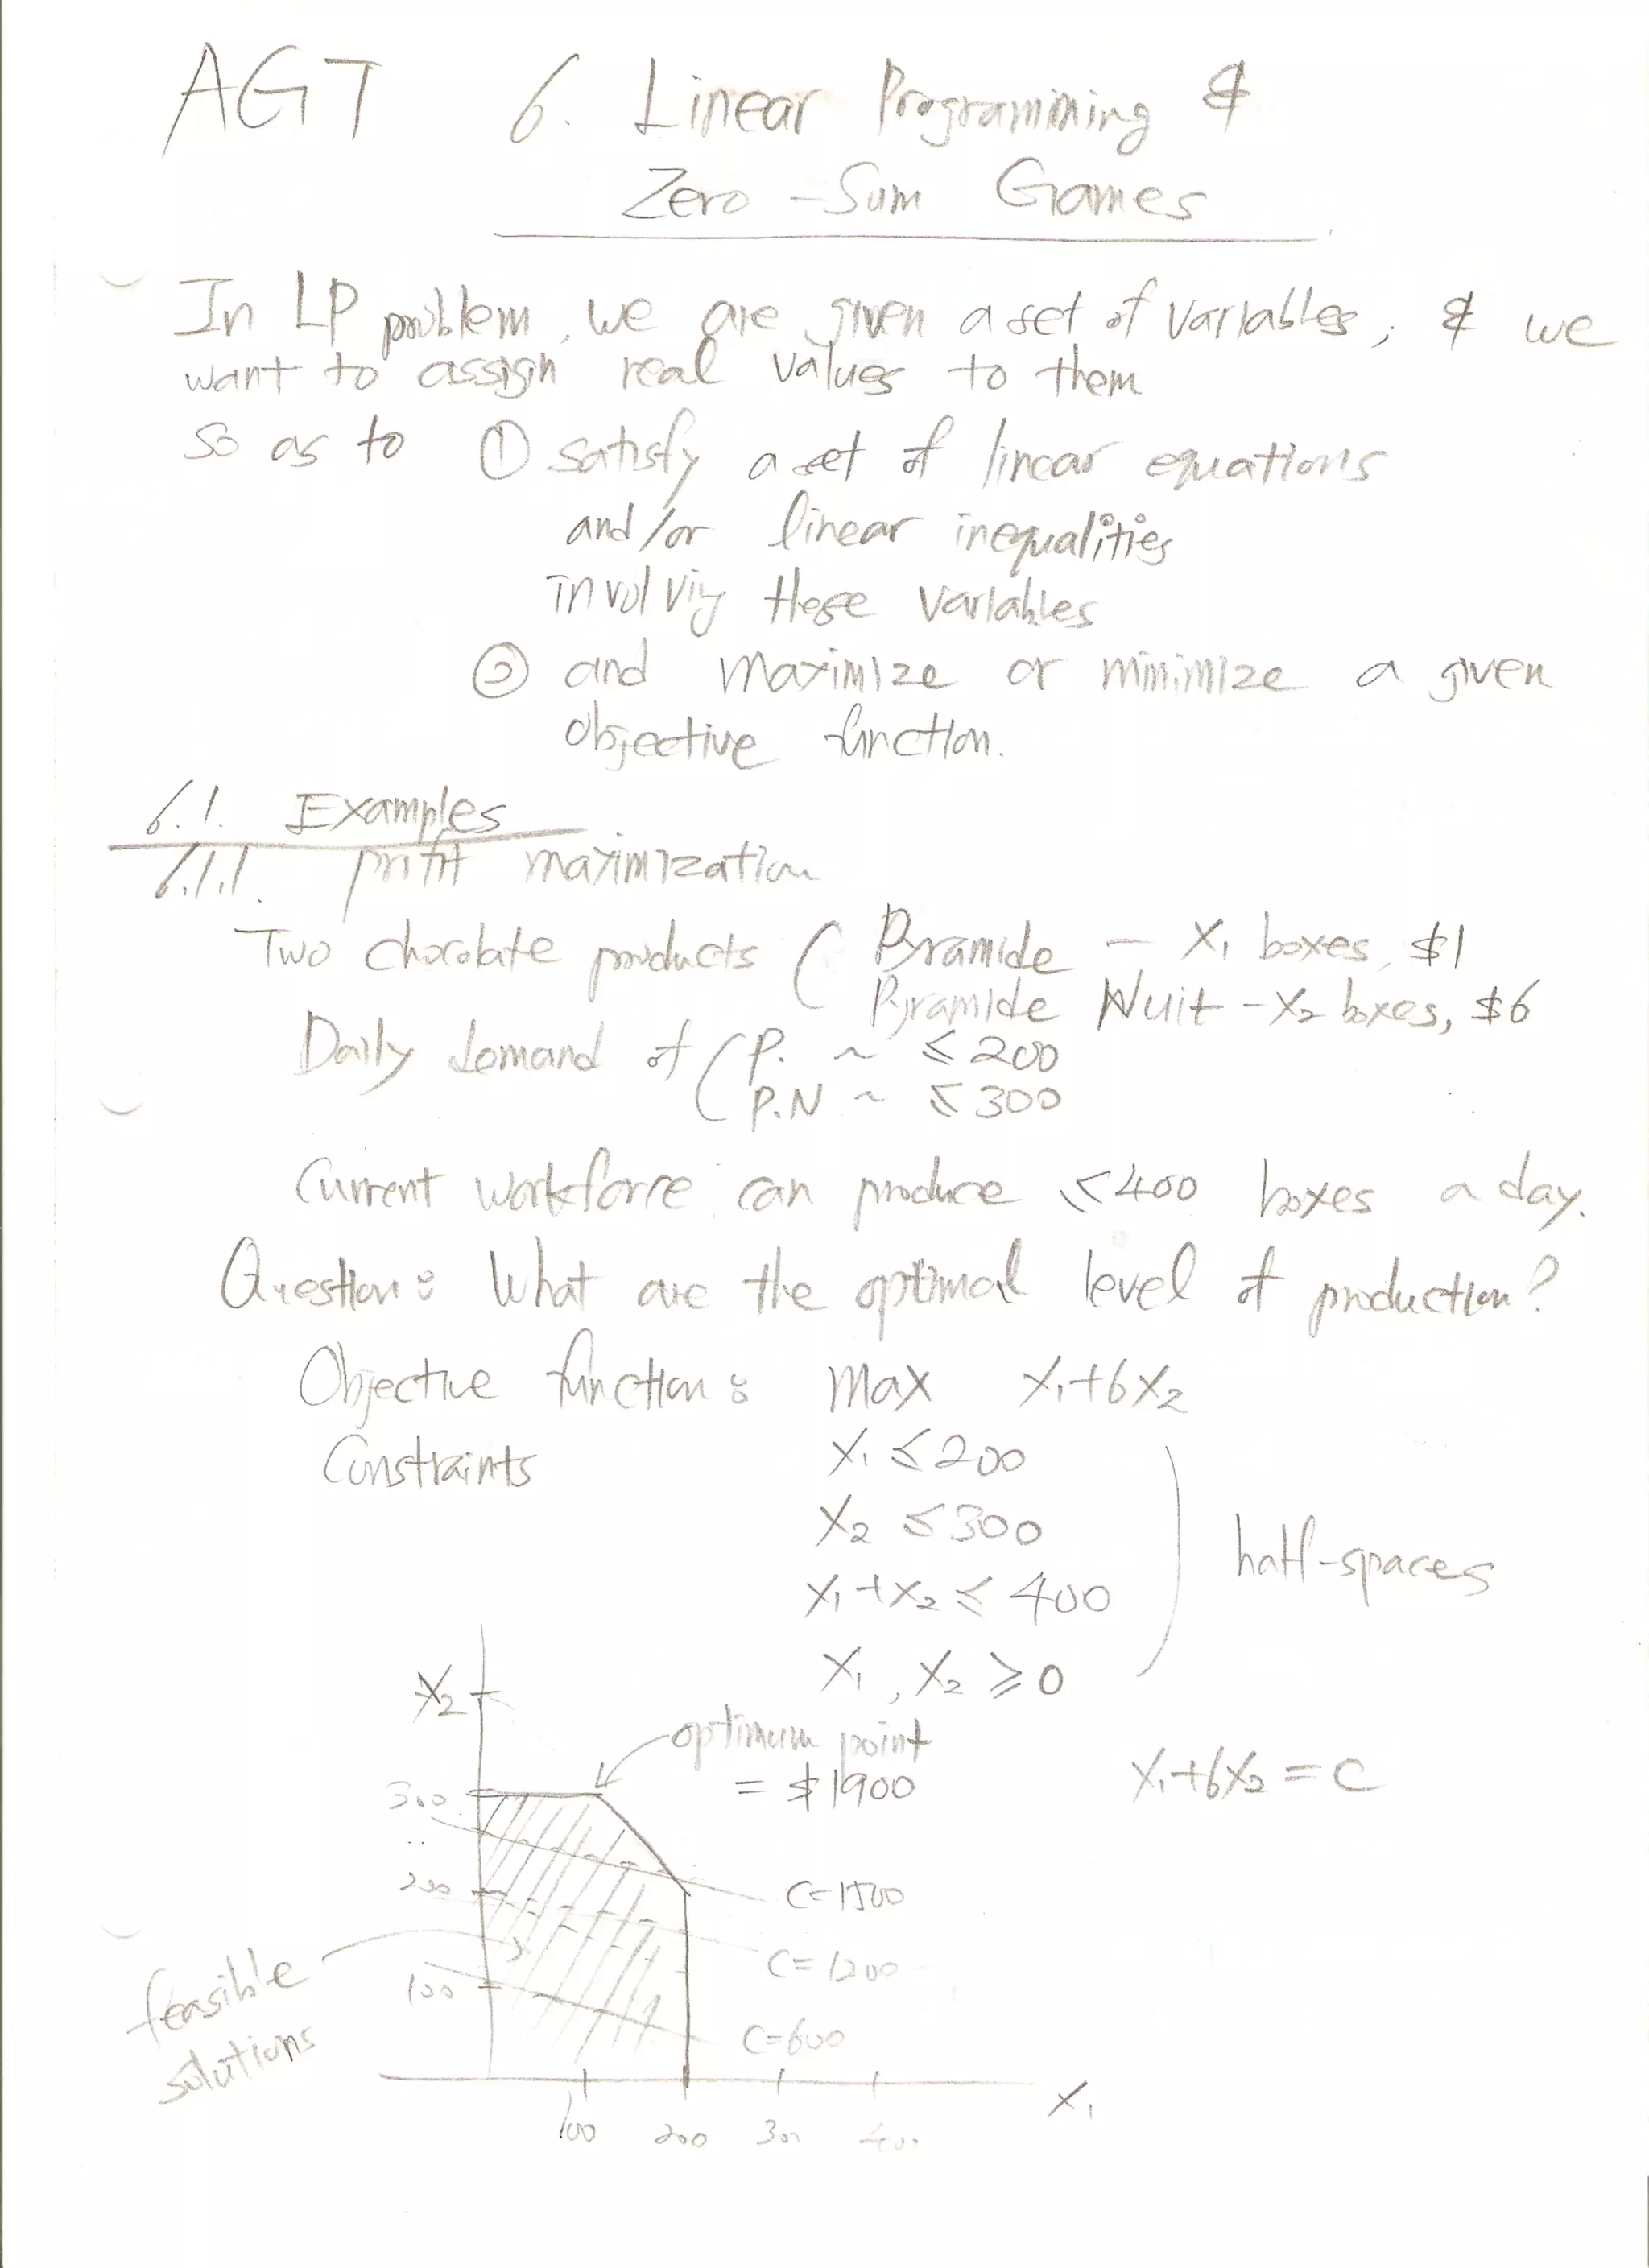 AGT 6. Linear Programming &
Zero-Sum Games
In LP problem, we are given a set of variables, & we
want to assign real values to them
so as to ① satisfy a set of linear equations
and/or linear inequalities
involving these variables
② and maximize or minimize a given
objective function.
6.1. Examples
6.1.1. profit maximization
Two chocolate products ( Pyramide - X₁ boxes, $1
Pyramide Nuit - X₂ boxes, $6
Daily demand of ( P. ~ ≤ 200
P.N ~ ≤ 300
Current workforce can produce ≤ 400 boxes a day.
Question: What are the optimal level of production?
Objective function: max X₁+6X₂
Constraints X₁ ≤ 200
X₂ ≤ 300
X₁+X₂ ≤ 400
X₁, X₂ ≥ 0
half-spaces
X₂
optimum point
= $1900
X₁+6X₂ = C
300
200
C=1500
C=1200
feasible
solutions
100
C=600
100 200 300 400
X₁